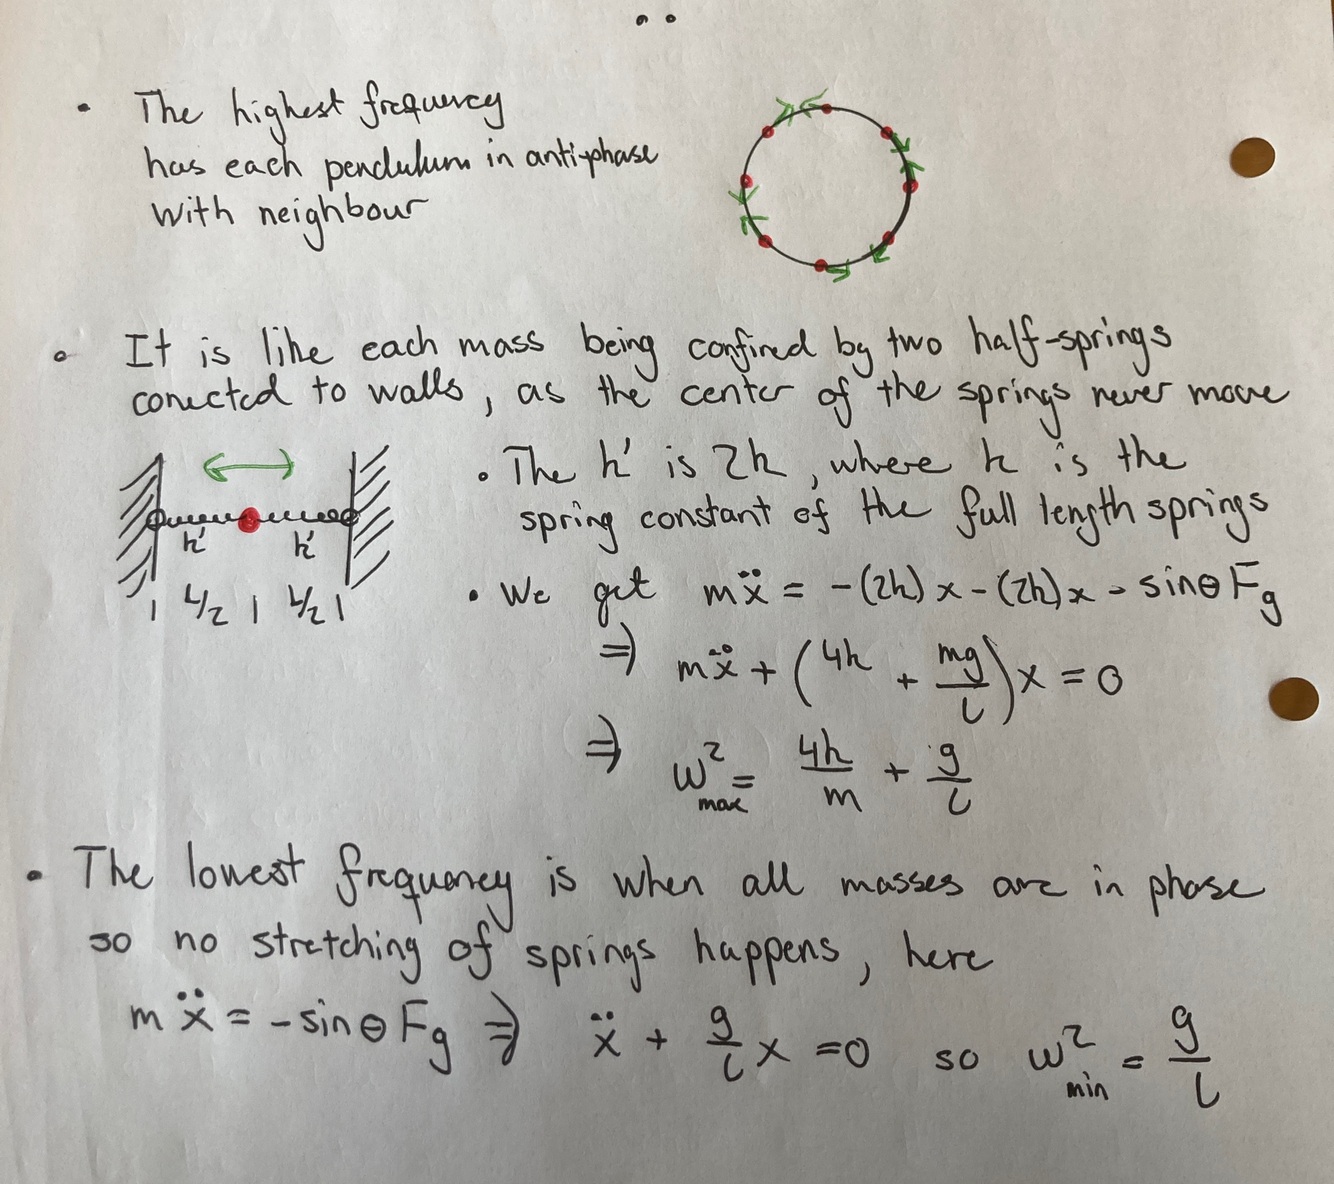 • The highest frequency
has each pendulum in anti-phase
with neighbour
• It is like each mass being confined by two half-springs
conected to walls, as the center of the springs never move
k' k'
| L/2 | L/2 |
• The k' is 2k, where k is the
spring constant of the full length springs
• We get mẍ = -(2k)x - (2k)x - sinθ Fg
⇒ mẍ + (4k + mg/l)x = 0
⇒ ω²max = 4k/m + g/l
• The lowest frequency is when all masses are in phase
so no stretching of springs happens, here
mẍ = -sinθ Fg ⇒ ẍ + g/l x = 0 so ω²min = g/l